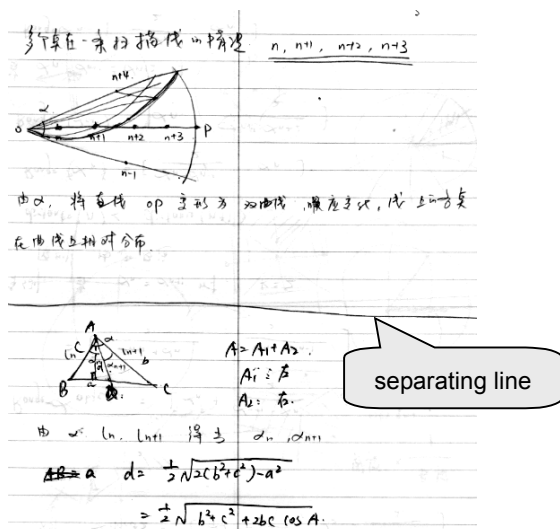 多个点在一条扫描线的情况 n, n+1, n+2, n+3
n+4
α
o n n+1 n+2 n+3 P
n-1
由α, 将直线 op 变形为双曲线, 顺应变化, 线上的各点
在曲线上相对分布.
separating line
A
C α
ln ln+1 b
αn+1
B a C
A=A1+A2.
A1: 左
A2: 右.
由 α ln, ln+1 得出 αn, αn+1
a d= ½√2(b²+c²)-a²
= ½√b²+c²+2bc cos A.